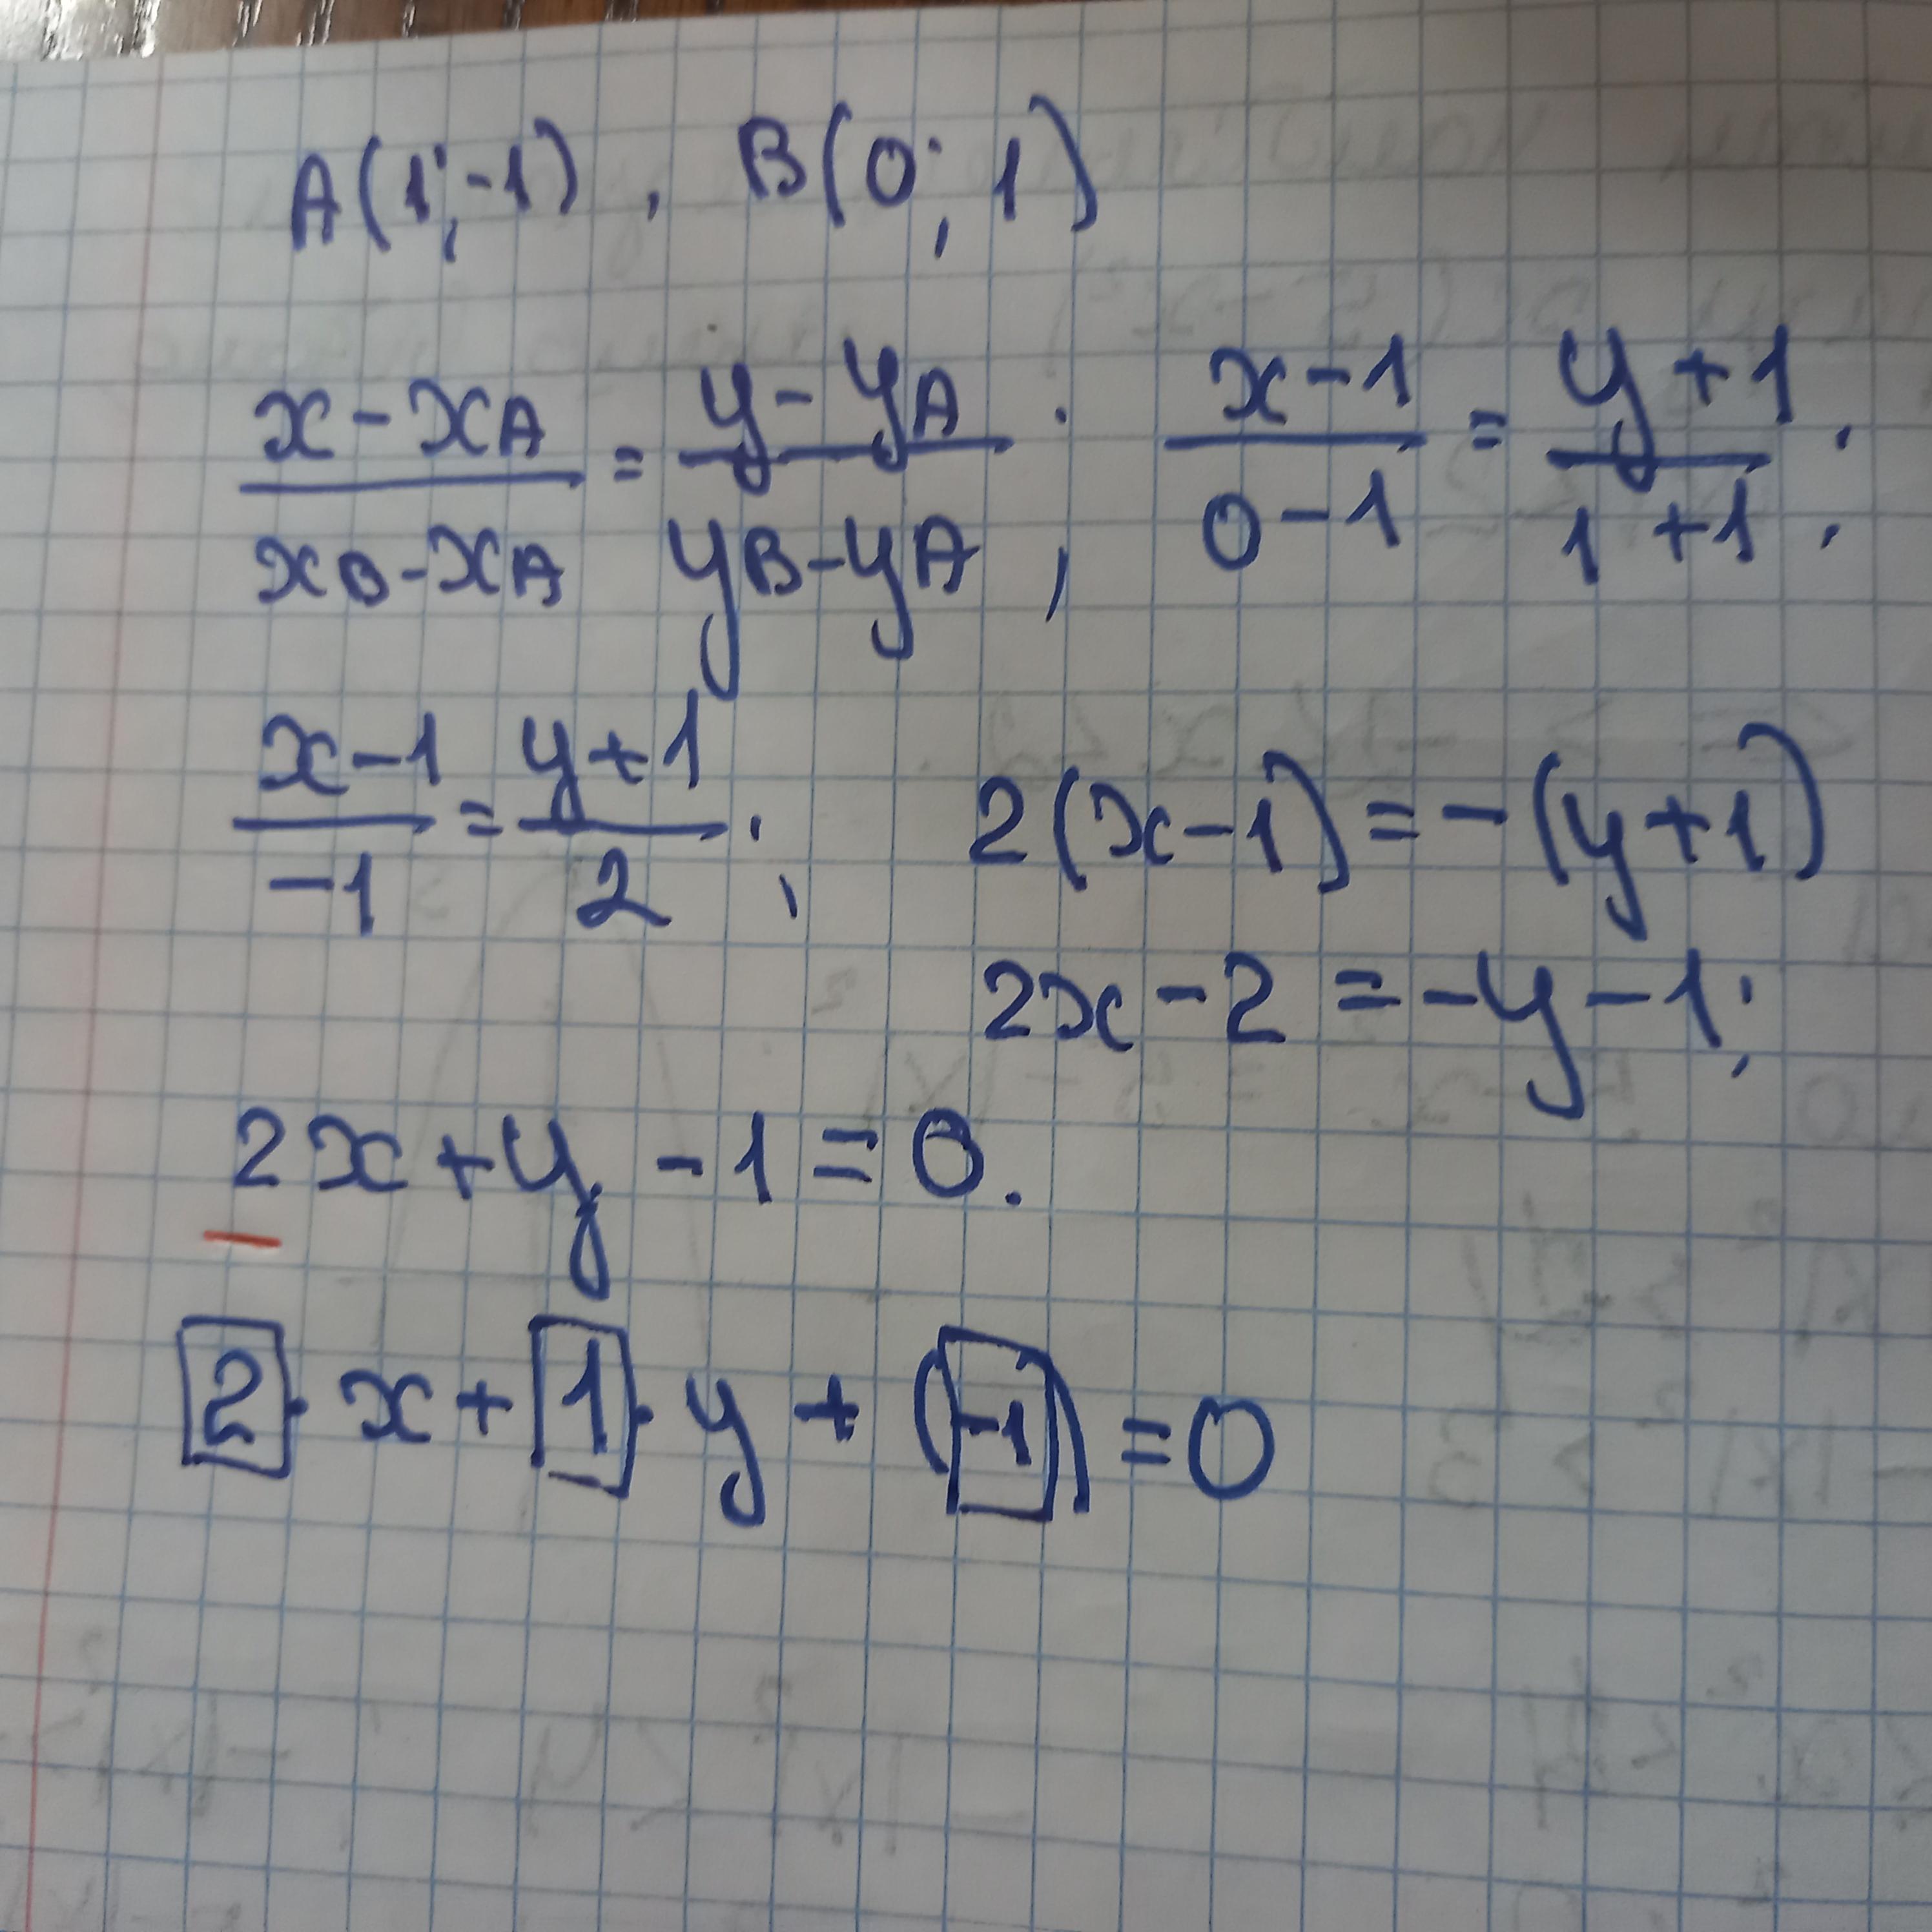 A(1;-1), B(0; 1)
(x - xA)/(xB - xA) = (y - yA)/(yB - yA); (x - 1)/(0 - 1) = (y + 1)/(1 + 1);
(x - 1)/(-1) = (y + 1)/2; 2(x - 1) = -(y + 1)
2x - 2 = -y - 1;
2x + y - 1 = 0.
2 · x + 1 · y + (-1) = 0